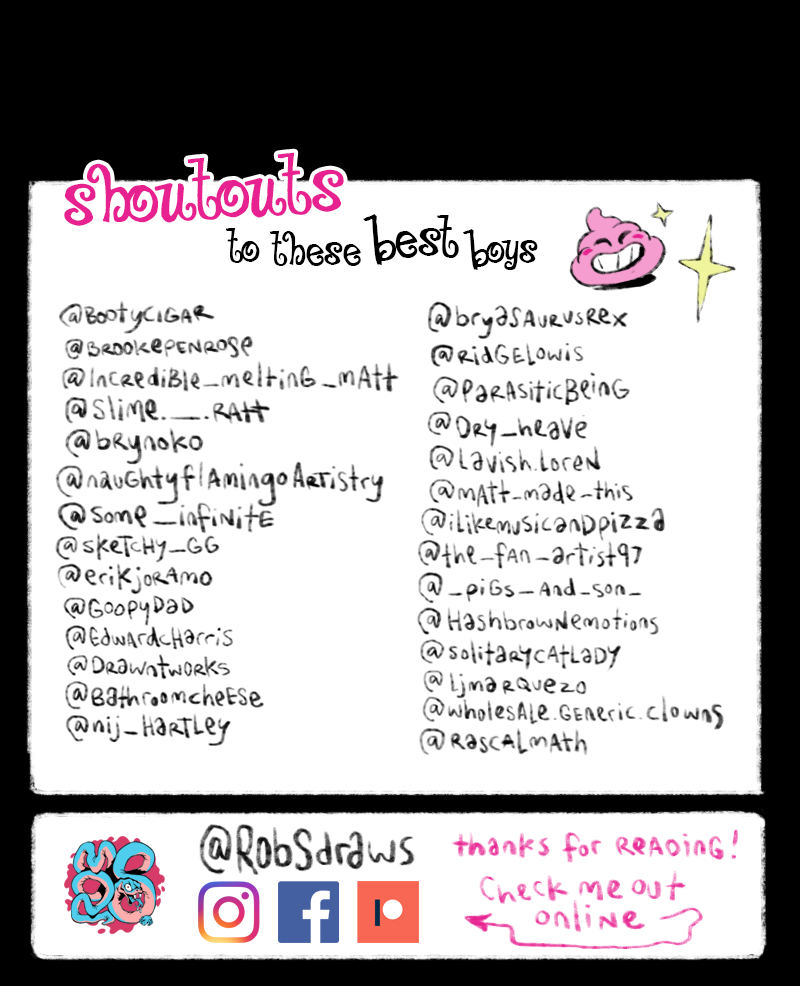 shoutouts
to these best boys
@BootyCIGAR
@BROOKEPENROSE
@IncrediBle_melting_mAtt
@Slime.__.RAtt
@bRynoko
@nauGhtyflAmingoARTistry
@some_infiNitE
@skeTCHy_GG
@erikjoRAmo
@GOOPYDaD
@EdwARdcHarris
@DrawntwoRks
@BathroomcheEse
@nij_HaRTLey
@bryaSAuRusRex
@RidGELowis
@PaRAsiticBeinG
@DRy_heavE
@Lavish.LoreN
@mAtt_made_this
@iLikemusicanDpizza
@the_fAN_artist97
@_piGs_And_son_
@HashbrowNemotions
@solitaRyCAtLaDy
@LjmaRquezo
@wholesAle.GEneric.clowns
@RascALmAth
@RobSdraws
thanks for ReADinG!
Check me out
onliNe